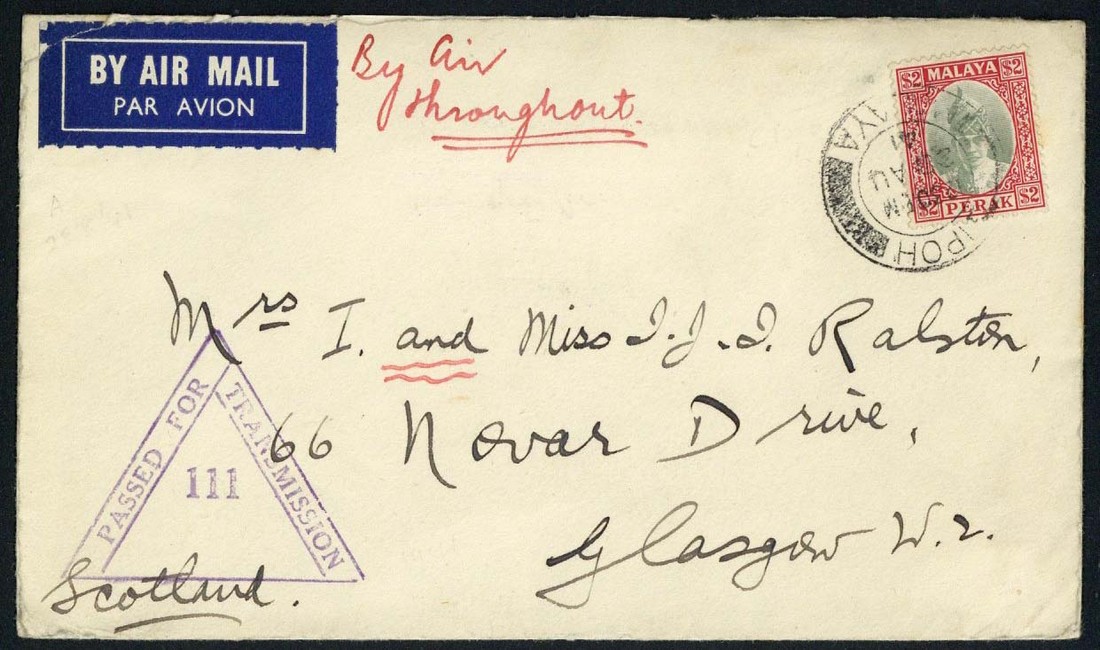 BY AIR MAIL
PAR AVION
By Air
throughout.
$2 MALAYA $2
$2 PERAK $2
IPOH
AU
PASSED FOR TRANSMISSION
111
Mrs I. and Miss J.J.J. Ralston,
66 Novar Drive,
Glasgow W.2.
Scotland.